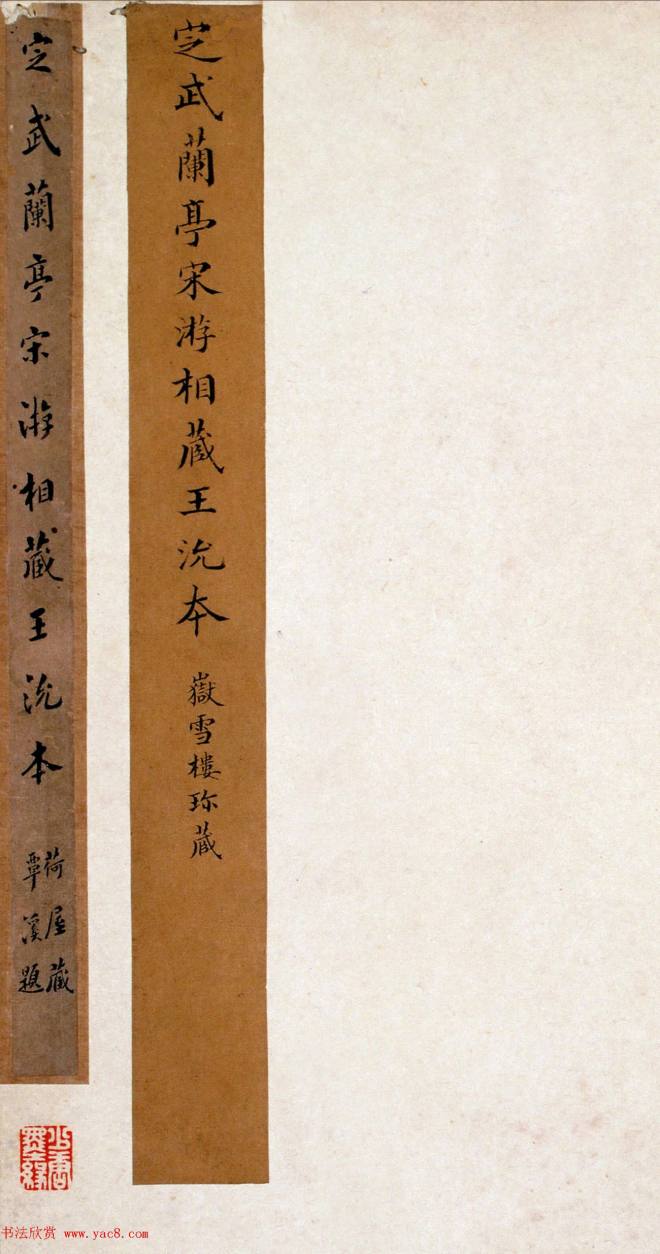 定武蘭亭宋游相藏王沇本
嶽雪樓珎藏
定武蘭亭宋游相藏王沇本
荷屋藏
覃溪題
书法欣赏 www.yac8.com